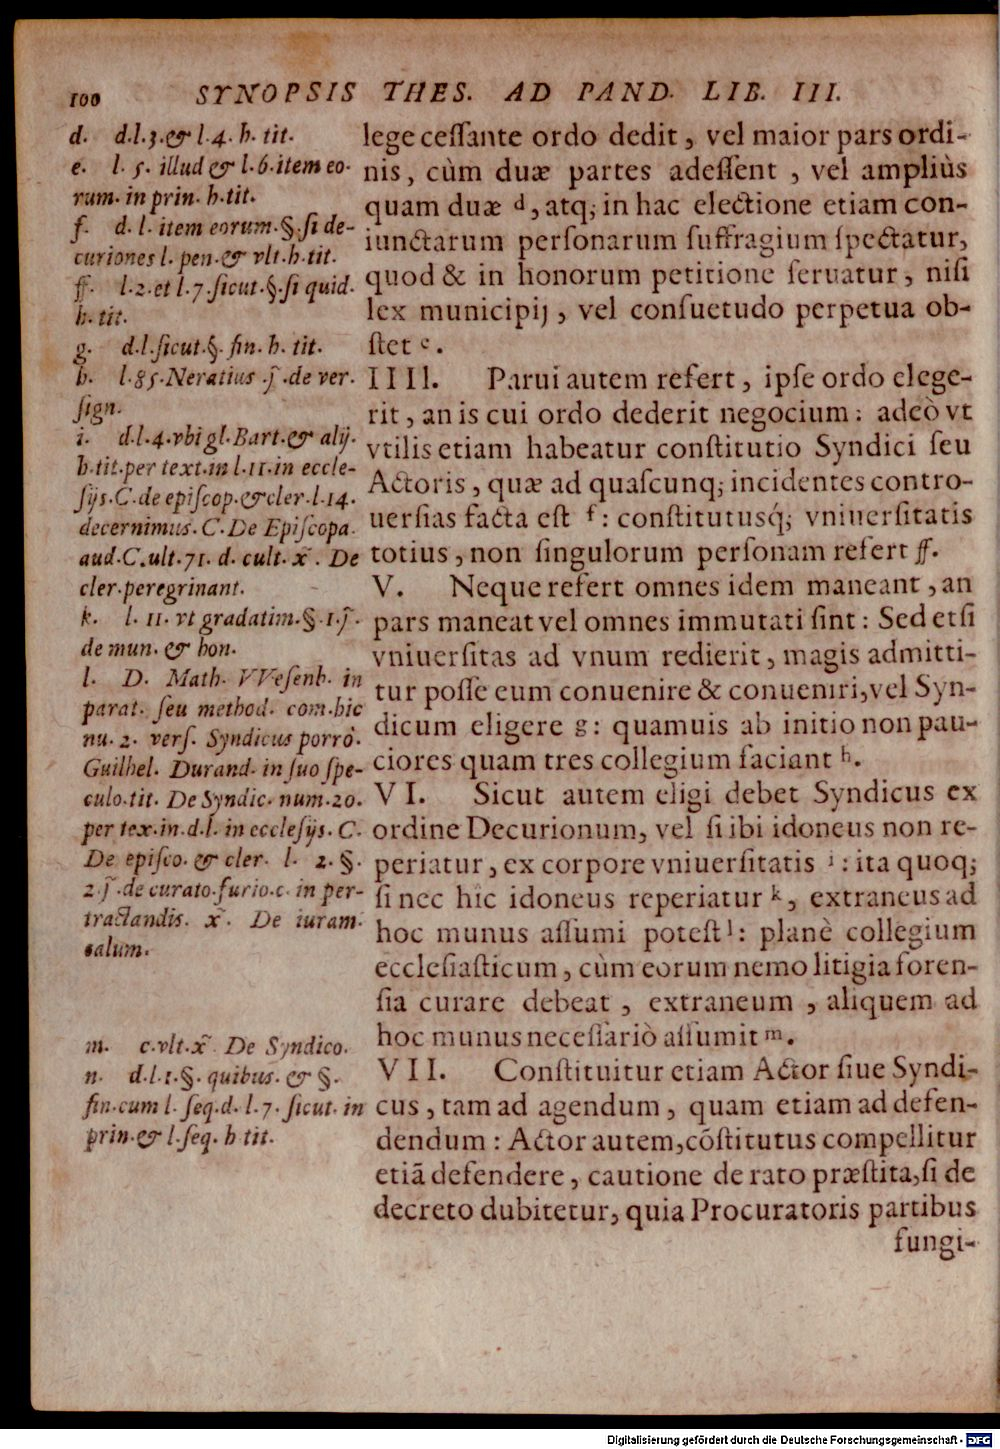 100 SYNOPSIS THES. AD PAND. LIB. III.
d. d.l.3.& l.4. h. tit.
e. l. 5. illud & l.6.item eo-
rum. in prin. h.tit.
f. d. l. item eorum.§.ſi de-
curiones l. pen.& vlt.h.tit.
ff. l.2.et l.7.ſicut.§.ſi quid.
h. tit.
g. d.l.ſicut.§. fin. h. tit.
h. l.85.Neratius .j̃ .de ver.
ſign.
i. d.l.4.vbi gl.Bart.& alij.
h.tit.per text.in l.11.in eccle-
ſijs.C.de epiſcop.& cler.l.14.
decernimus. C. De Epiſcopa.
aud.C.ult.71. d. cult. x̃ . De
cler.peregrinant.
k. l. 11. vt gradatim.§.1.j̃.
de mun. & hon.
l. D. Math. VVeſenb. in
parat. ſeu method. com.hic
nu. 2. verſ. Syndicus porrò.
Guilhel. Durand. in ſuo ſpe-
culo.tit. De Syndic. num.20.
per tex.in.d.l. in eccleſijs. C.
De epiſco. & cler. l. 2. §.
2.j̃ .de curato.furio.c. in per-
tractandis. x̃ . De iuram.
calum.
m. c.vlt.x̃ De Syndico.
n. d.l.1.§. quibus. & §.
fin.cum l. ſeq.d. l.7. ſicut. in
prin.& l.ſeq. h tit.
lege ceſſante ordo dedit , vel maior pars ordi-
nis , cùm duæ partes adeſſent , vel ampliùs
quam duæ d , atq; in hac electione etiam con-
iunctarum perſonarum ſuffragium ſpectatur,
quod & in honorum petitione ſeruatur , niſi
lex municipij , vel conſuetudo perpetua ob-
ſtet e .
IIII. Parui autem refert , ipſe ordo elege-
rit , an is cui ordo dederit negocium : adeò vt
vtilis etiam habeatur conſtitutio Syndici ſeu
Actoris , quæ ad quaſcunq; incidentes contro-
uerſias facta eſt f : conſtitutusq́; vniuerſitatis
totius , non ſingulorum perſonam refert ff.
V. Neque refert omnes idem maneant , an
pars maneat vel omnes immutati ſint : Sed etſi
vniuerſitas ad vnum redierit , magis admitti-
tur poſſe eum conuenire & conueniri, vel Syn-
dicum eligere g : quamuis ab initio non pau-
ciores quam tres collegium faciant h.
VI. Sicut autem eligi debet Syndicus ex
ordine Decurionum, vel ſi ibi idoneus non re-
periatur , ex corpore vniuerſitatis i : ita quoq;
ſi nec hic idoneus reperiatur k , extraneus ad
hoc munus aſſumi poteſt l : planè collegium
eccleſiaſticum , cùm eorum nemo litigia foren-
ſia curare debeat , extraneum , aliquem ad
hoc munus neceſſariò aſſumit m.
VII. Conſtituitur etiam Actor ſiue Syndi-
cus , tam ad agendum , quam etiam ad defen-
dendum : Actor autem, cõſtitutus compellitur
etiã defendere , cautione de rato præſtita, ſi de
decreto dubitetur, quia Procuratoris partibus
fungi-
Digitalisierung gefördert durch die Deutsche Forschungsgemeinschaft - DFG